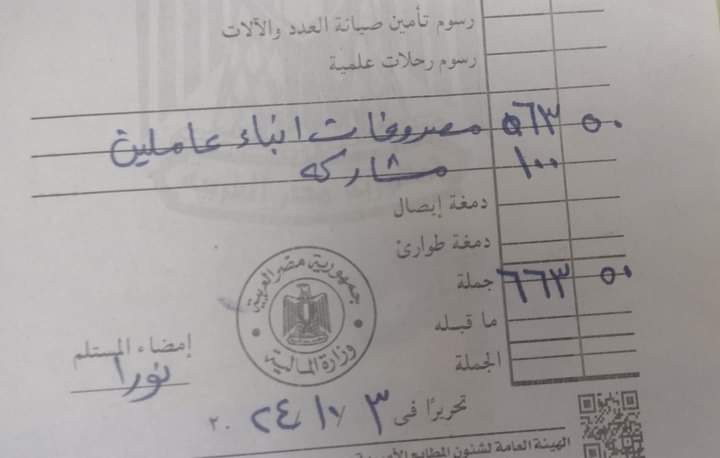 رسوم تأمين صيانة العدد والآلات
رسوم رحلات علمية
مصروفات ابناء عاملين ٥٦٣ ٥٠
مشاركه ١٠٠
دمغة إيصال
دمغة طوارئ
جملة ٦٦٣ ٥٠
ما قبله
الجملة
جمهورية مصر العربية
وزارة المالية
إمضاء المستلم
نورا
تحريرًا فى ٣ / ١٠ / ٢٠٢٤
الهيئة العامة لشئون المطابع الأميرية